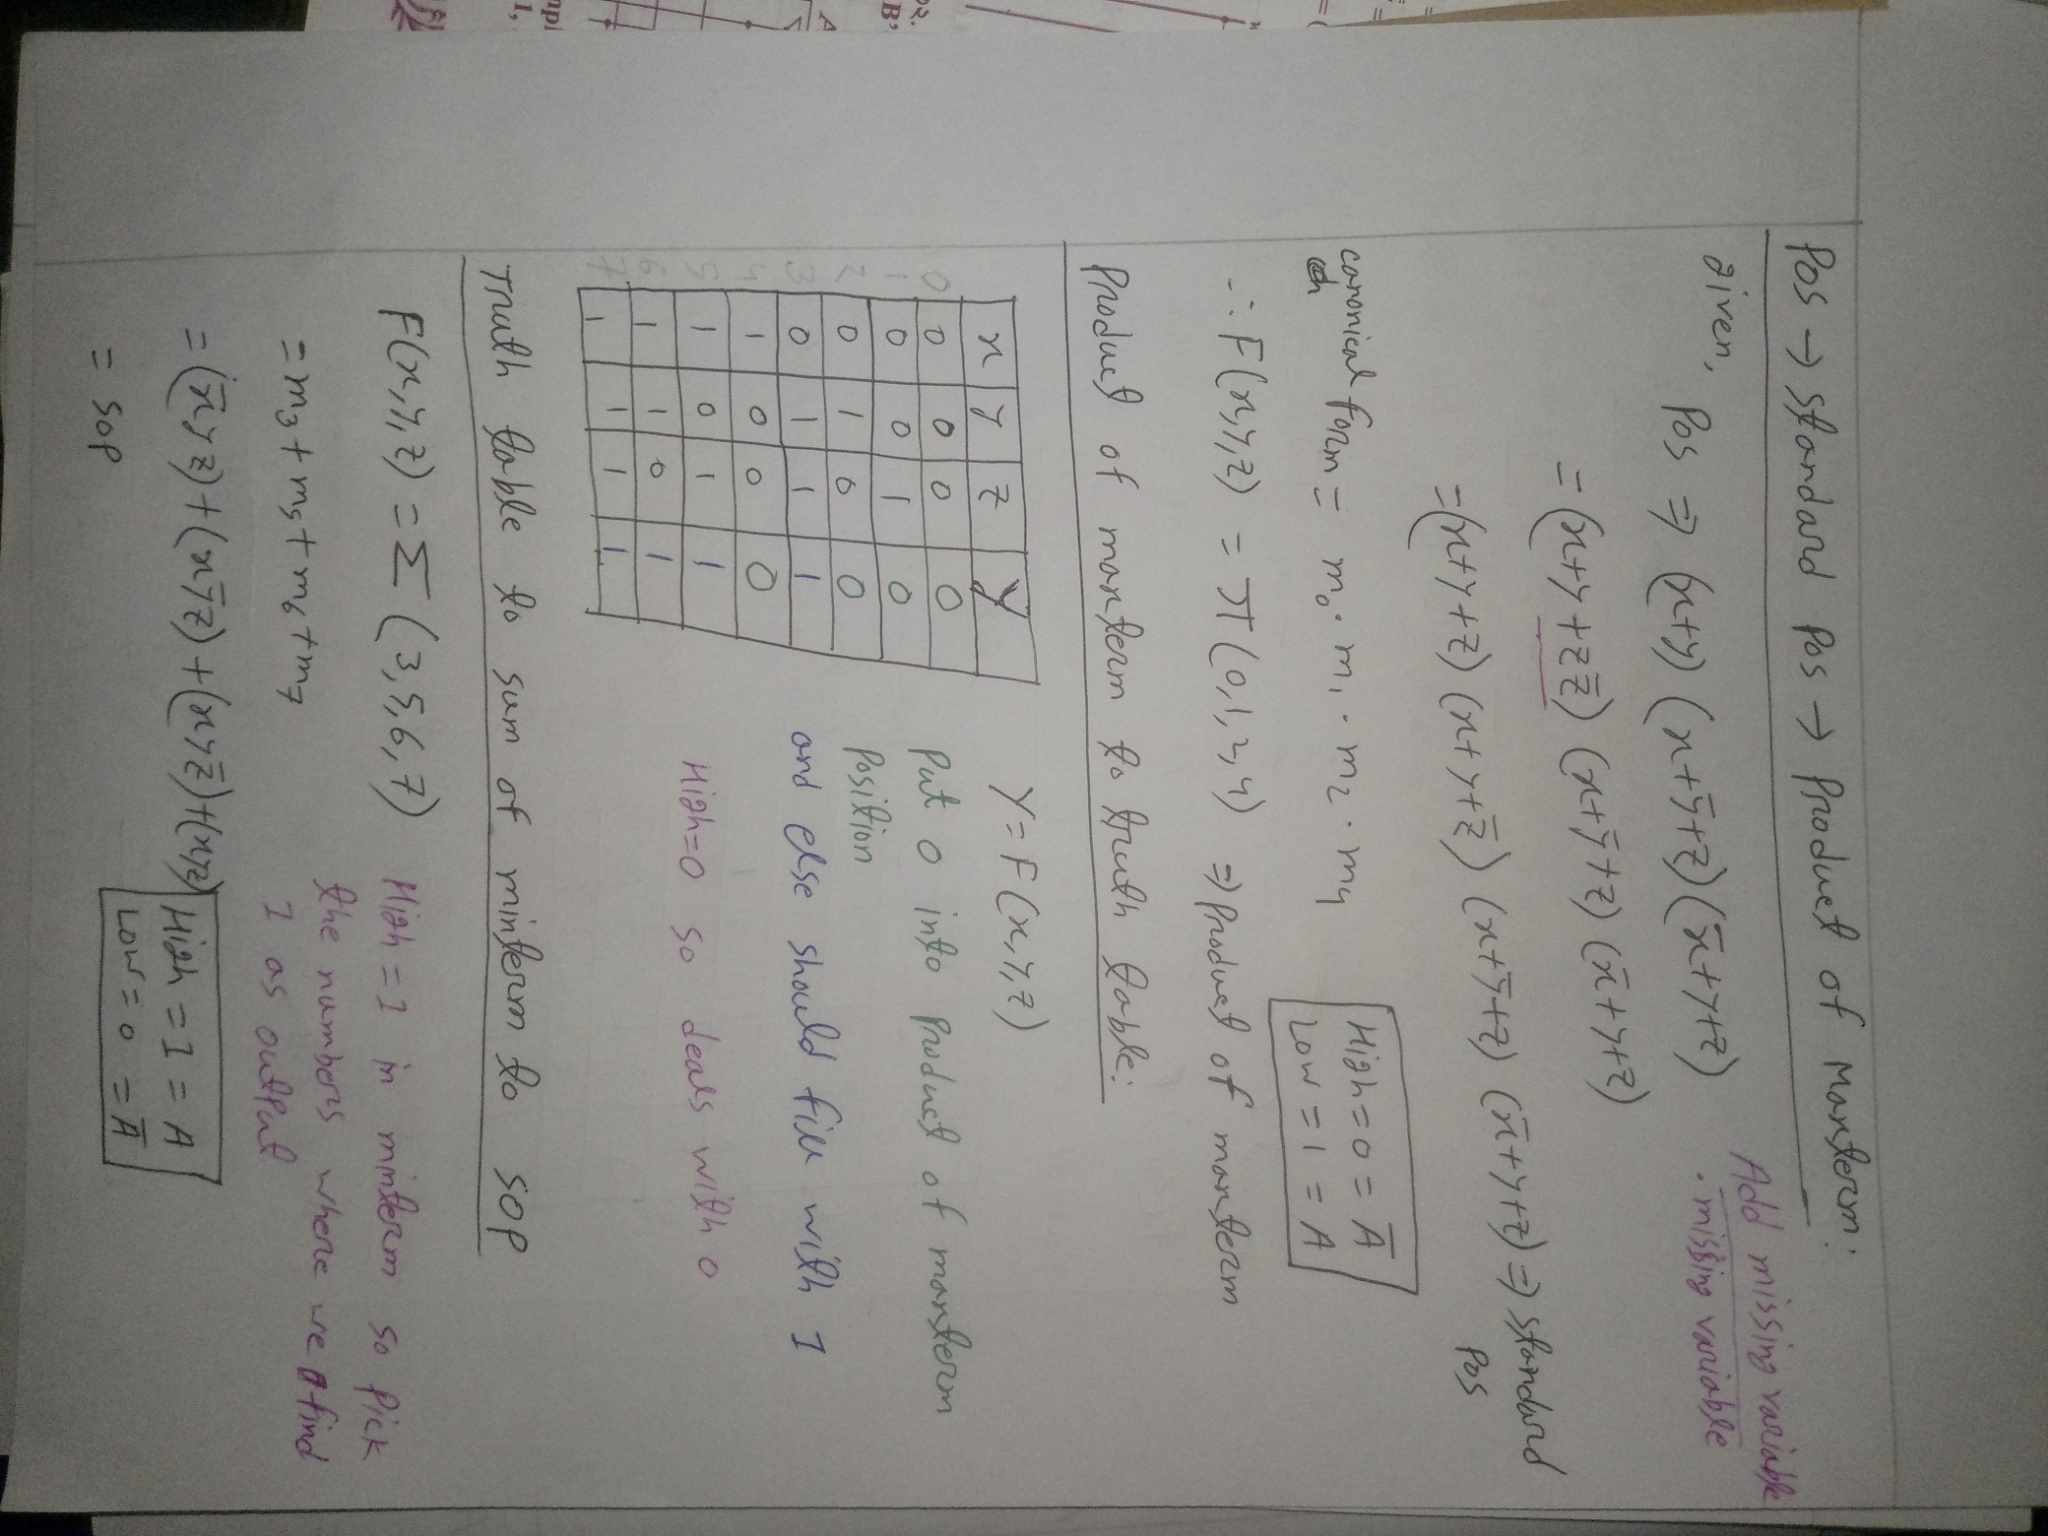 POS → standard POS → Product of Maxterm:
given,
Add missing variable
. missing variable
POS ⇒ (x+y) (x+ȳ+z) (x̄+y+z)
= (x+y+zz̄) (x+ȳ+z) (x̄+y+z)
= (x+y+z) (x+y+z̄) (x+ȳ+z) (x̄+y+z) ⇒ standard
POS
canonical form = m₀ · m₁ · m₂ · m₄
High = 0 = Ā
Low = 1 = A
∴ F(x,y,z) = π (0,1,2,4) ⇒ Product of maxterm
Product of maxterm to truth table:
x y z Y
0 0 0 0 0
1 0 0 1 0
2 0 1 0 0
3 0 1 1 1
4 1 0 0 0
5 1 0 1 1
6 1 1 0 1
7 1 1 1 1
Y = F(x,y,z)
Put 0 into Product of maxterm
Position
and else should fill with 1
High=0 so deals with 0
Truth table to sum of minterm to SOP
F(x,y,z) = Σ (3,5,6,7)
High = 1 in minterm so Pick
the numbers where we find
1 as output
= m₃ + m₅ + m₆ + m₇
= (x̄yz) + (xȳz) + (xyz̄) + (xyz)
High = 1 = A
Low = 0 = Ā
= SOP
02.
B'
A
1,